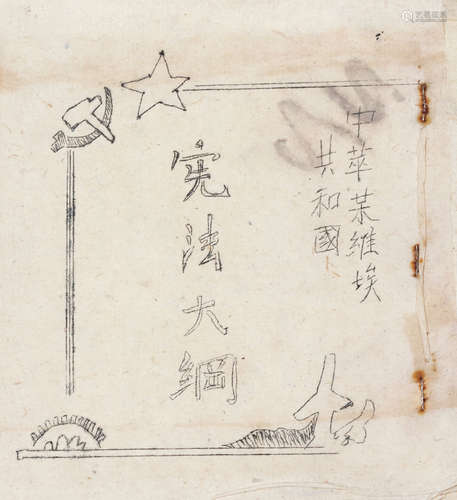 中華苏維埃
共和國
宪法大綱